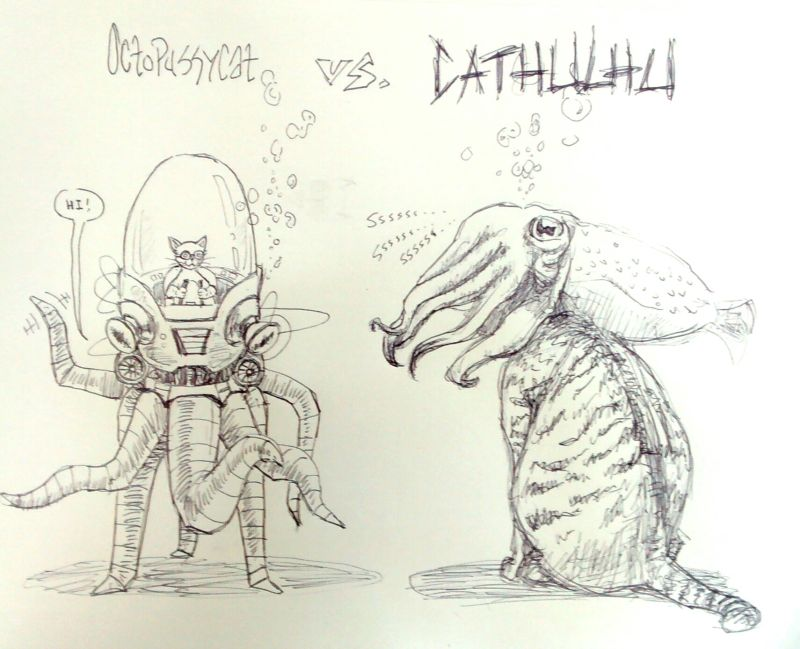 OctoPussyCat vs. CATHULHU
HI!
Sssssss....
Sssssss....
ssssss